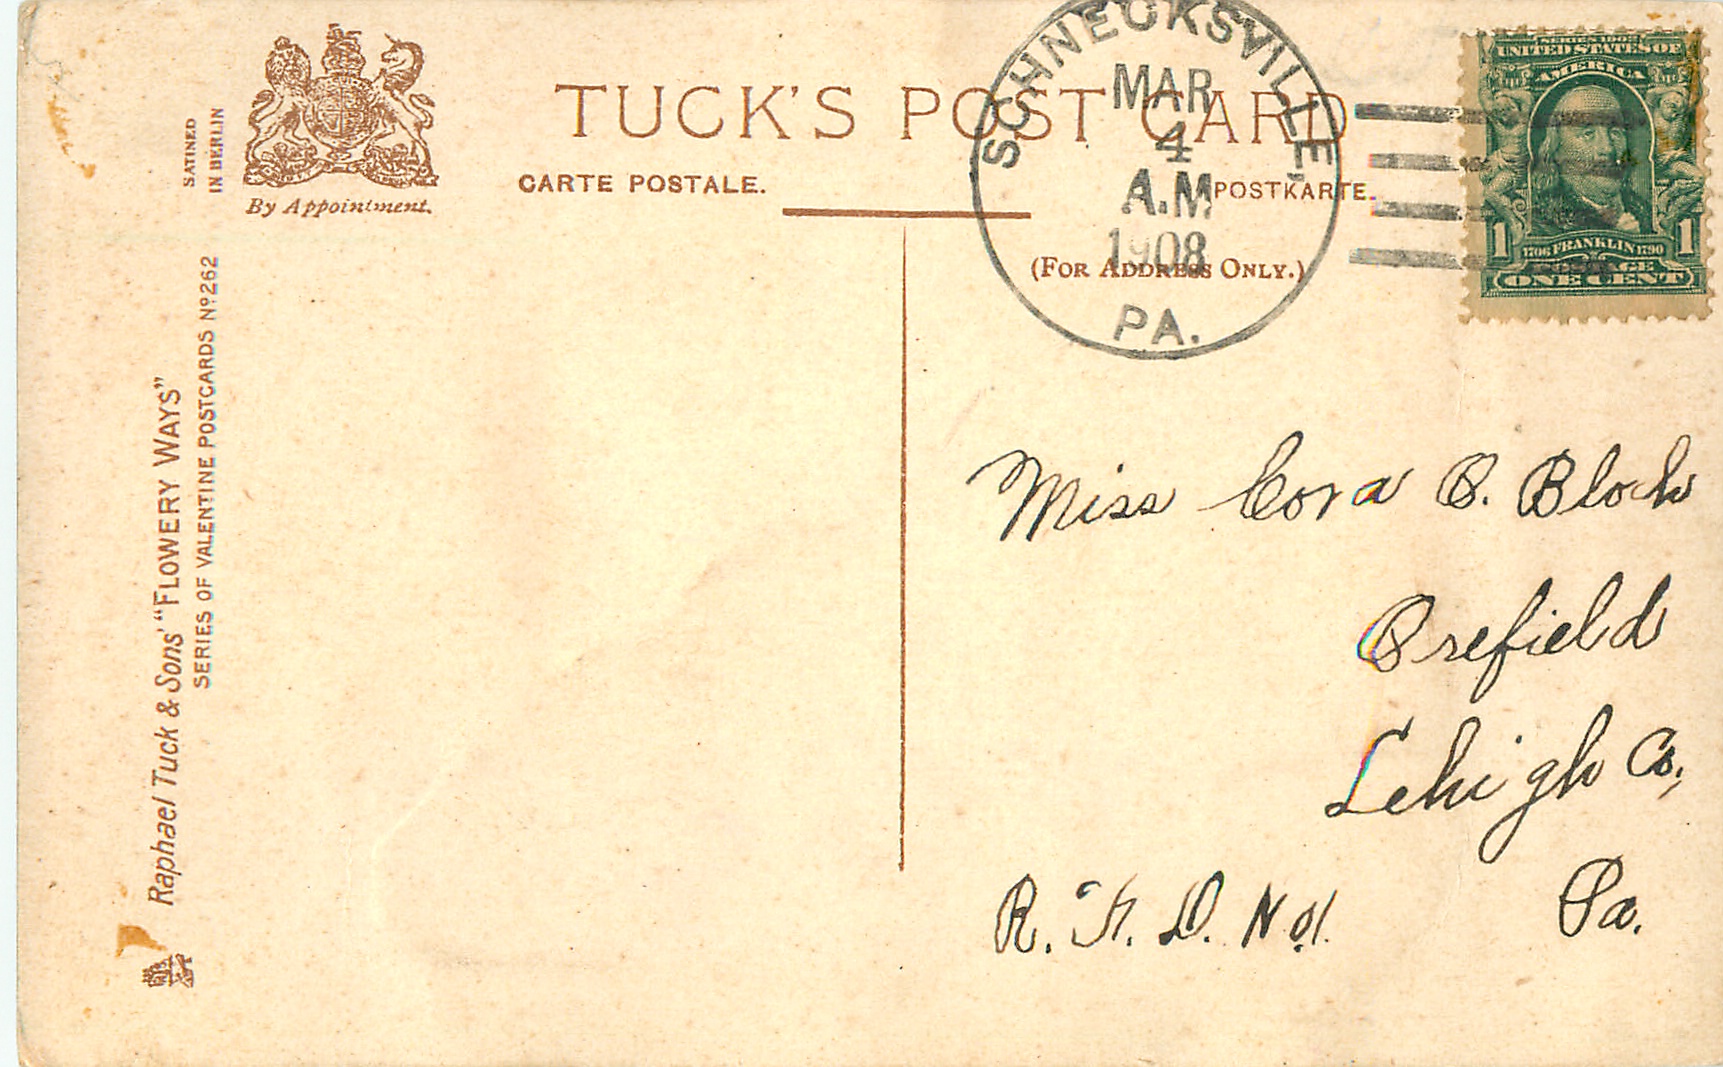 TUCK'S POST CARD
CARTE POSTALE.
POSTKARTE.
(FOR ADDRESS ONLY.)
By Appointment.
SATINED
IN BERLIN
Raphael Tuck & Sons' "FLOWERY WAYS"
SERIES OF VALENTINE POSTCARDS Nº 262
SCHNECKSVILLE,
MAR
4
A.M
1908
PA.
SERIES 1902
UNITED STATES OF
AMERICA
1706 FRANKLIN 1790
1 1
POSTAGE
ONE CENT
Miss Cora O. Bloch
Orefield
Lehigh Co,
R. F. D. No 1. Pa.